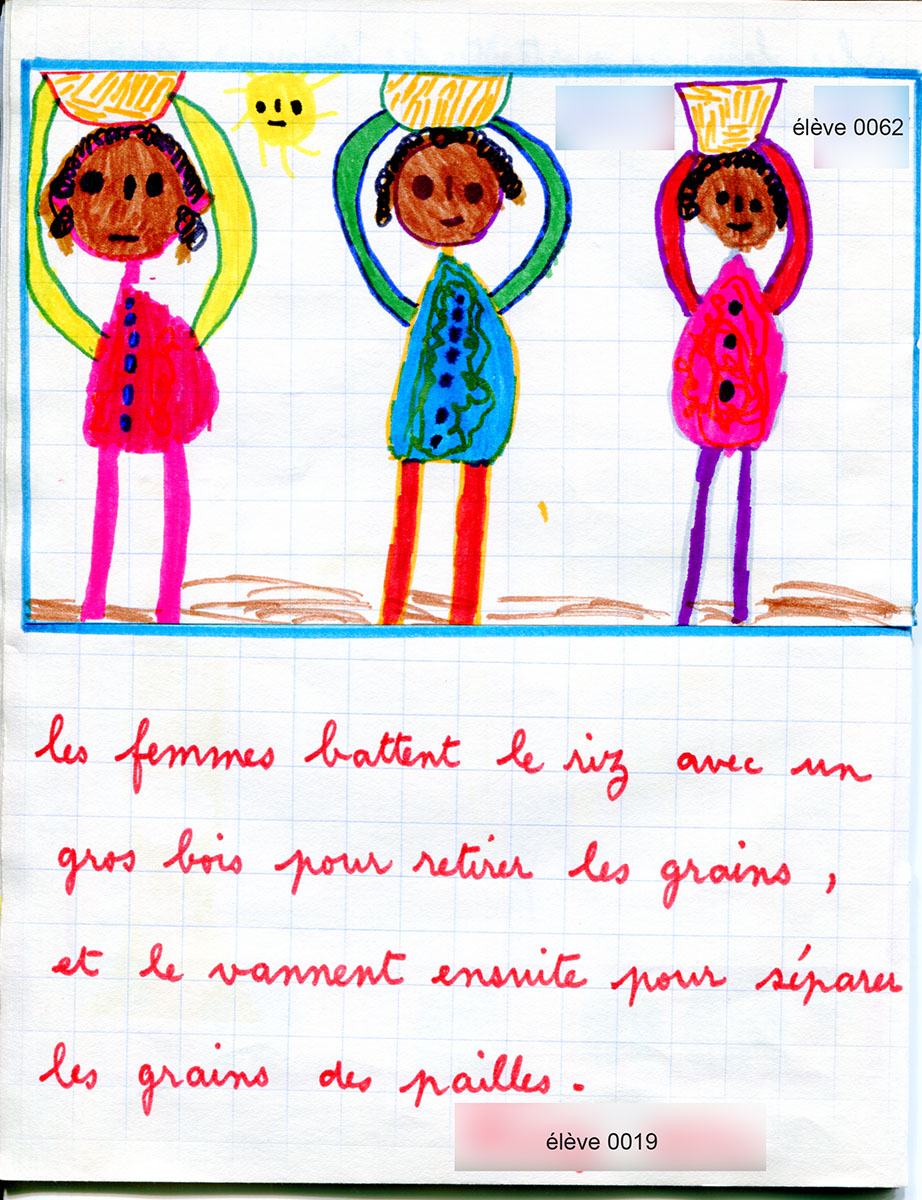 élève 0062
les femmes battent le riz avec un
gros bois pour retirer les grains,
et le vannent ensuite pour séparer
les grains des pailles.
élève 0019